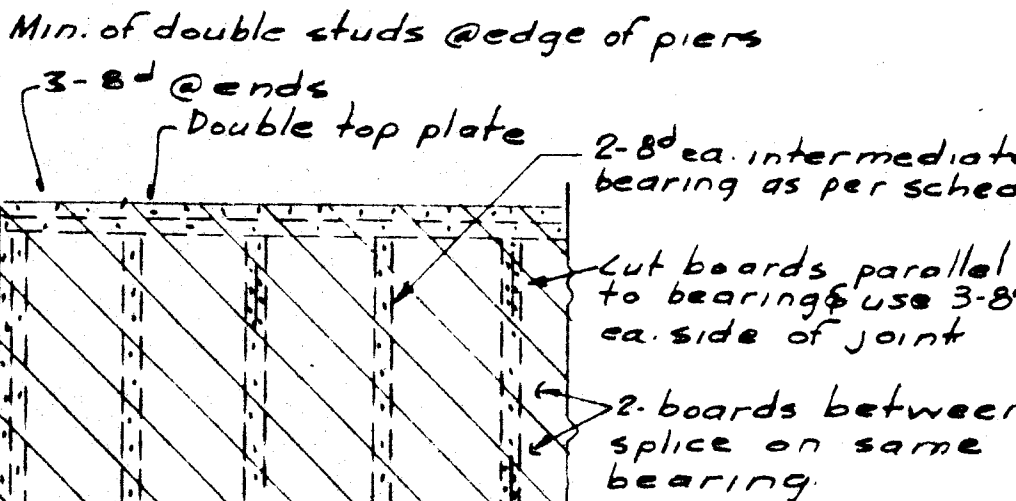 Min. of double studs @edge of piers
3-8d @ ends
Double top plate
2-8d ea. intermediate
bearing as per sched
Cut boards parallel
to bearing & use 3-8d
ea. side of joint
2-boards between
splice on same
bearing.